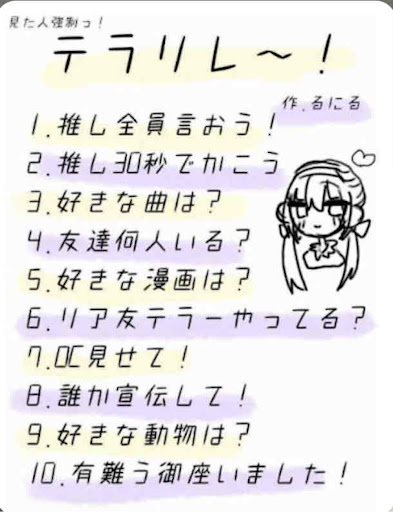 見た人強制っ!
テラリレ〜!
作.るにる
1.推し全員言おう!
2.推し30秒でかこう
3.好きな曲は?
4.友達何人いる?
5.好きな漫画は?
6.リア友テラーやってる?
7.OC見せて!
8.誰か宣伝して!
9.好きな動物は?
10.有難う御座いました!